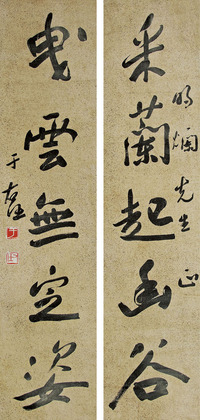 采蘭起幽谷
明爛先生正
曳雲無定姿
于右任